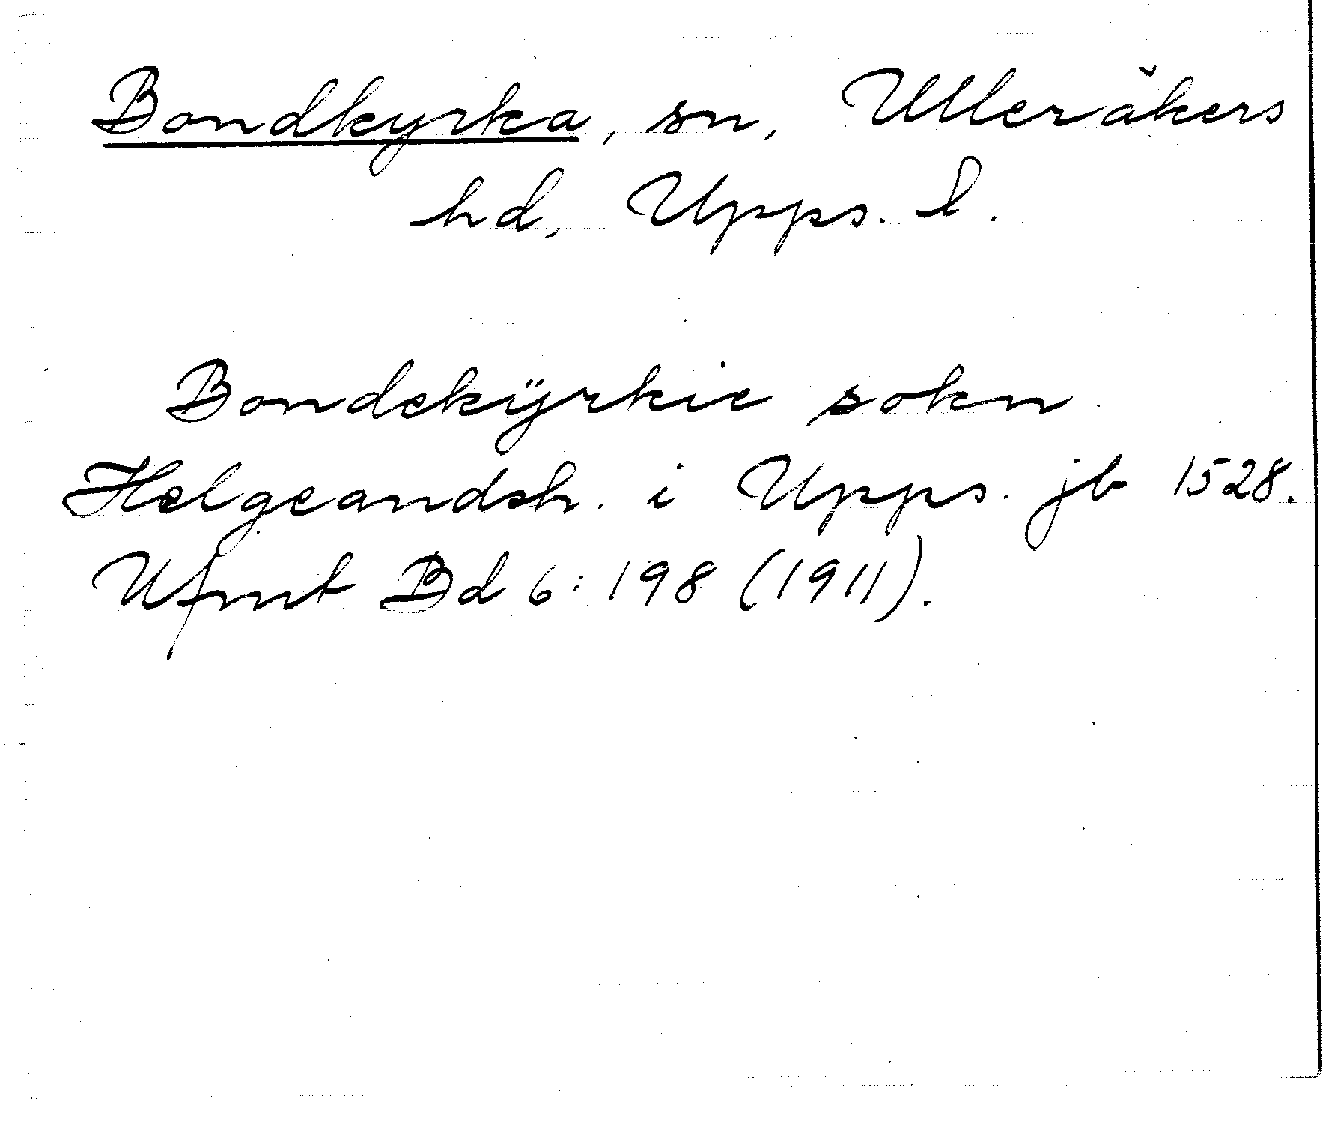 Bondkyrka, sn, Ulleråkers
hd, Upps. l.
Bondekÿrkie sokn
Helgeandsh. i Upps. jb 1528.
Ufmt Bd 6: 198 (1911).